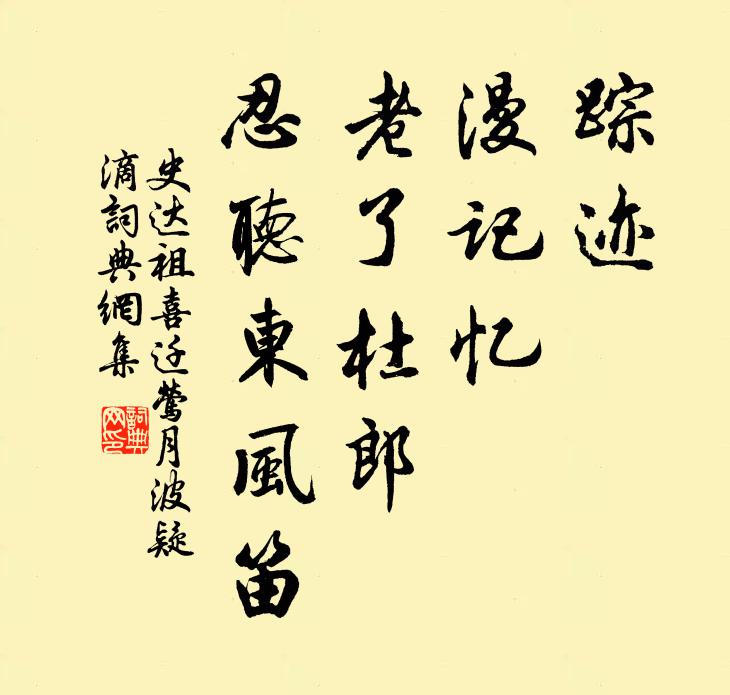 踪迹
漫记忆
老了杜郎
忍聽東風笛
史达祖喜迁莺月波疑
滴詞典網集
詞典
网印